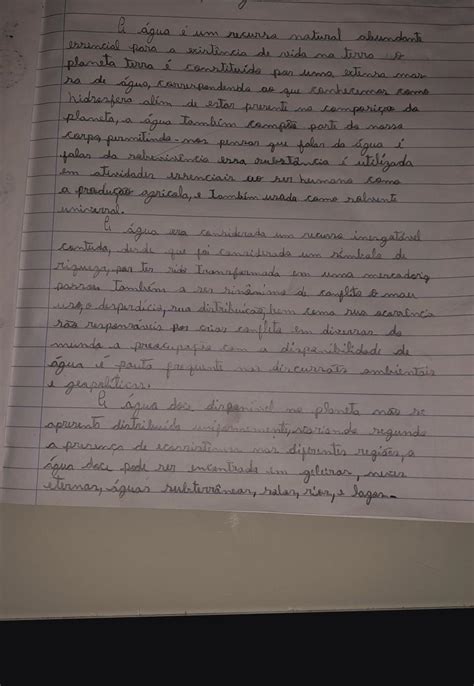 A água é um recurso natural abundante
essencial para a existência de vida na terra o
planeta terra é constituído por uma extensa mas
sa de água, correspondendo ao que conhecemos como
hidrosfera além de estar presente na composição do
planeta, a água também compõe parte do nosso
corpo, permitindo-nos pensar que falar da água é
falar da sobrevivência essa substância é utilizada
em atividades essenciais ao ser humano como
a produção agrícola, e também usada como solvente
universal.
A água era considerada um recurso inesgotável
contudo, desde que foi considerada um símbolo de
riqueza, por ter sido transformada em uma mercadoria
passou também a ser sinônimo de conflito o mau
uso, o desperdício, sua distribuição, bem como sua escassez
são responsáveis por criar conflito em diversas do
mundo a preocupação com a disponibilidade de
água é pauta frequente nos discursos ambientais
e geopolíticas.
A água doce disponível no planeta não se
apresenta distribuída uniformemente, variando segundo
a presença de ecossistemas nas diferentes regiões, a
água doce pode ser encontrada em geleiras, neves
eternas, águas subterrâneas, solos, rios, e lagos.